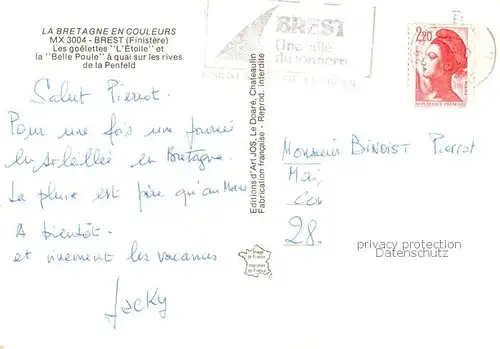 LA BRETAGNE EN COULEURS
MX 3004 - BREST (Finistère)
Les goélettes "L'Étoile" et
la "Belle Poule" à quai sur les rives
de la Penfeld
BREST
Une ville
du tonnerre
2,20
REPUBLIQUE FRANÇAISE
Salut Pierrot.
Pour une fois une journée
ensoleillée en Bretagne.
La pluie est pire qu'au Mans
A bientôt.
et vivement les vacances
Jacky
Editions d'Art JOS, Le Doaré, Chateaulin
Fabrication française - Reprod. interdite
Image
de France
Monsieur BINOIST Pierrot
28.
privacy protection
Datenschutz